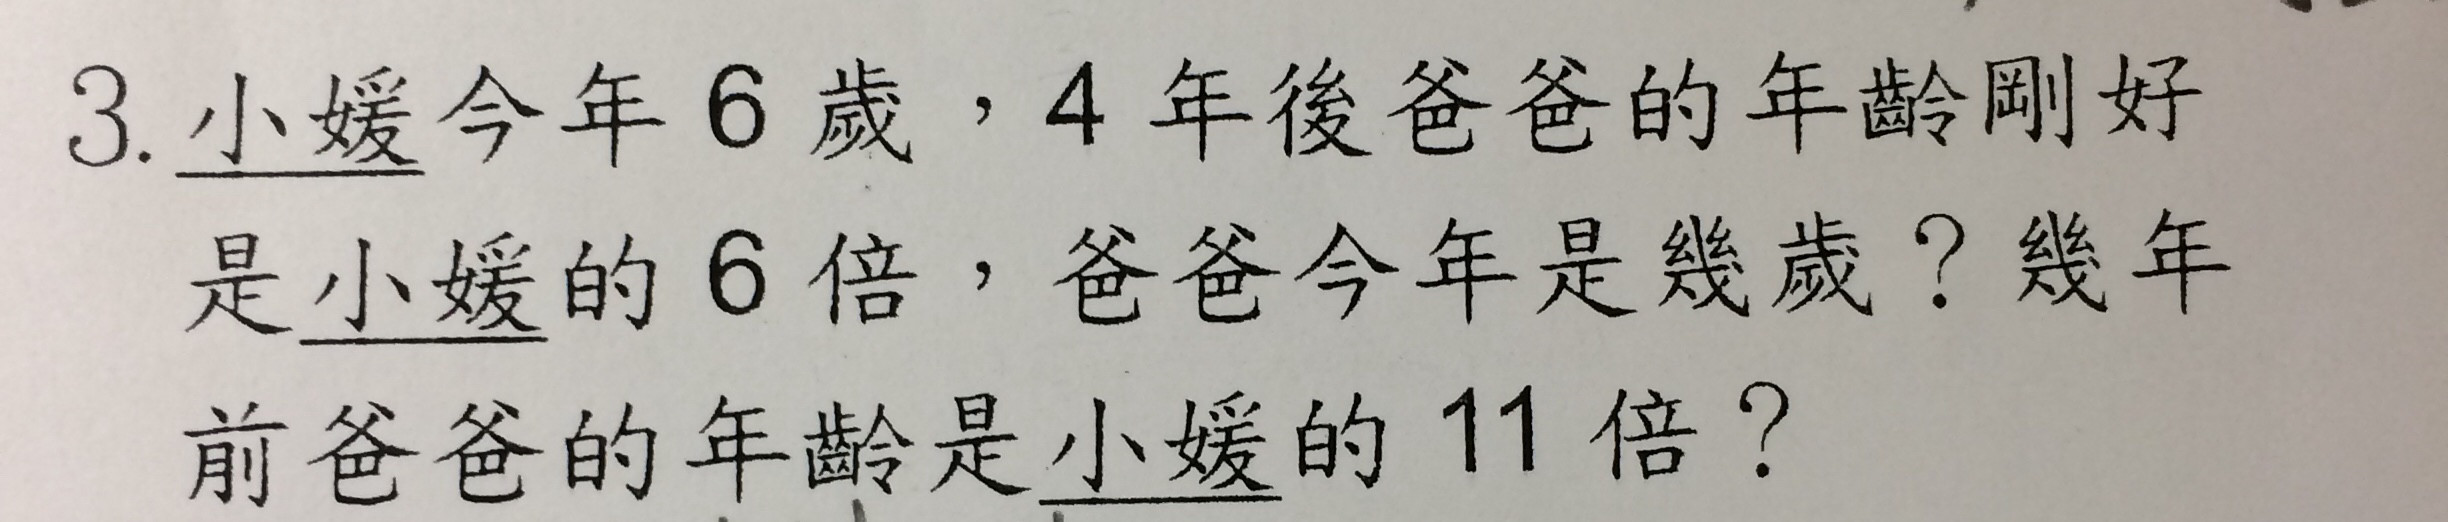 3. 小媛今年 6 歲，4 年後爸爸的年齡剛好
是小媛的 6 倍，爸爸今年是幾歲？幾年
前爸爸的年齡是小媛的 11 倍？